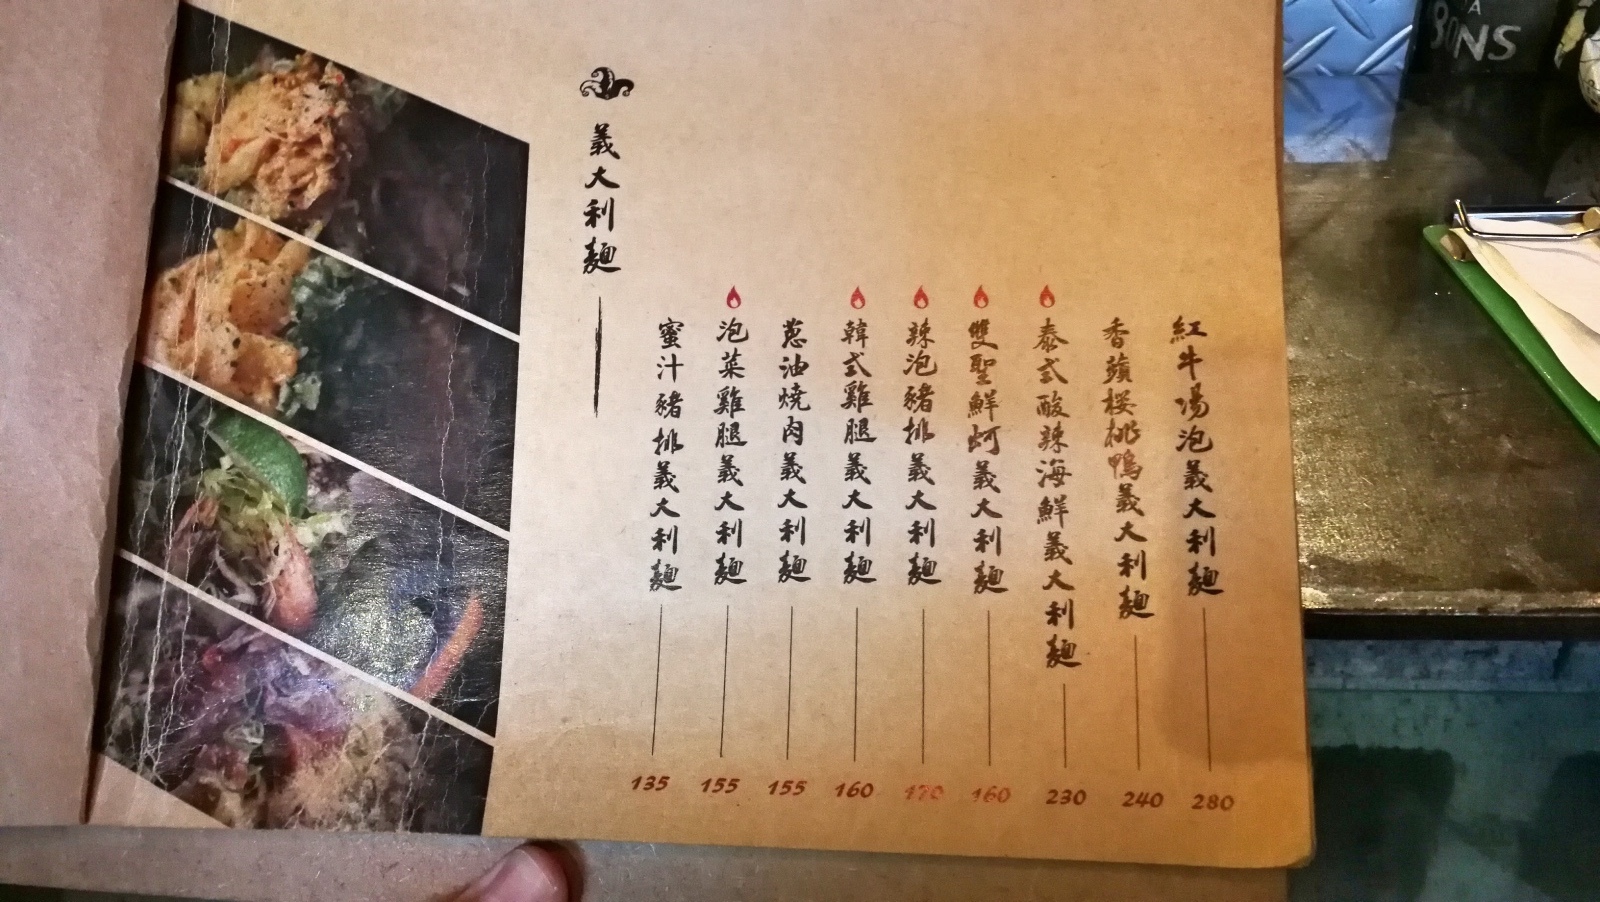 義大利麵
蜜汁豬排義大利麵 135
泡菜雞腿義大利麵 155
蔥油燒肉義大利麵 155
韓式雞腿義大利麵 160
辣泡豬排義大利麵
雙聖鮮蚵義大利麵 160
泰式酸辣海鮮義大利麵 230
香蘋桜桃鴨義大利麵 240
紅牛湯泡義大利麵 280
A
BONS